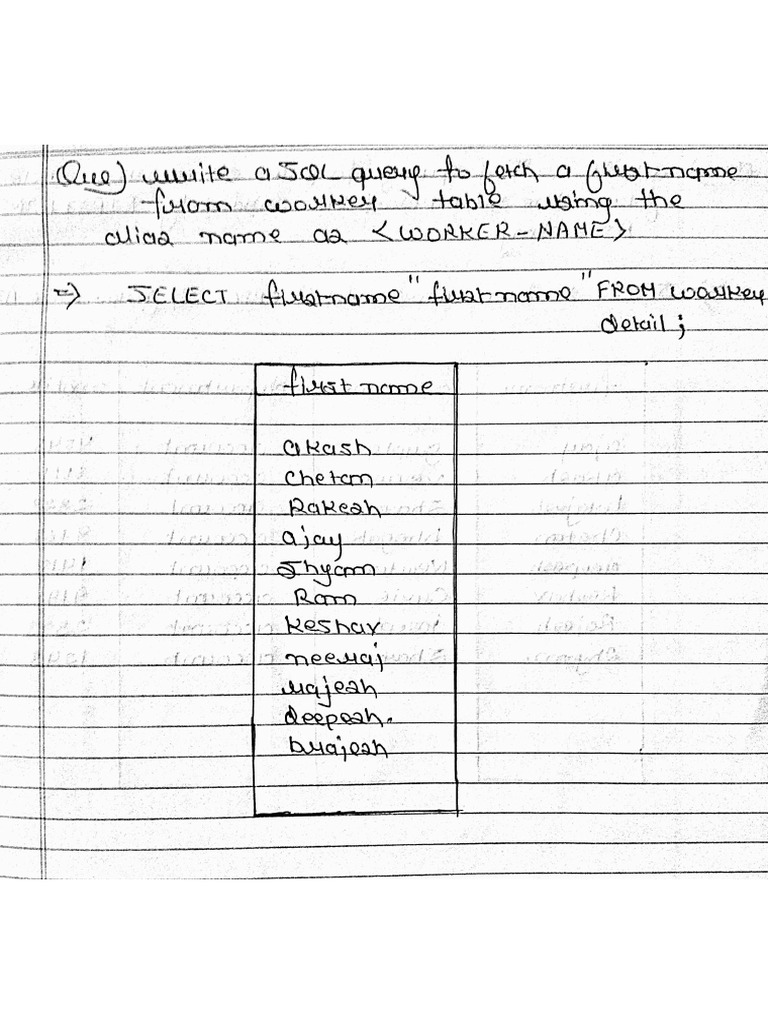 Que) write a SQL query to fetch a first name
from worker table using the
alias name as <WORKER-NAME>
=> SELECT firstname "first name" FROM worker
detail;
first name
akash
chetan
Rakesh
ajay
Shyam
Ram
keshav
neeraj
rajesh
deepesh.
brajesh